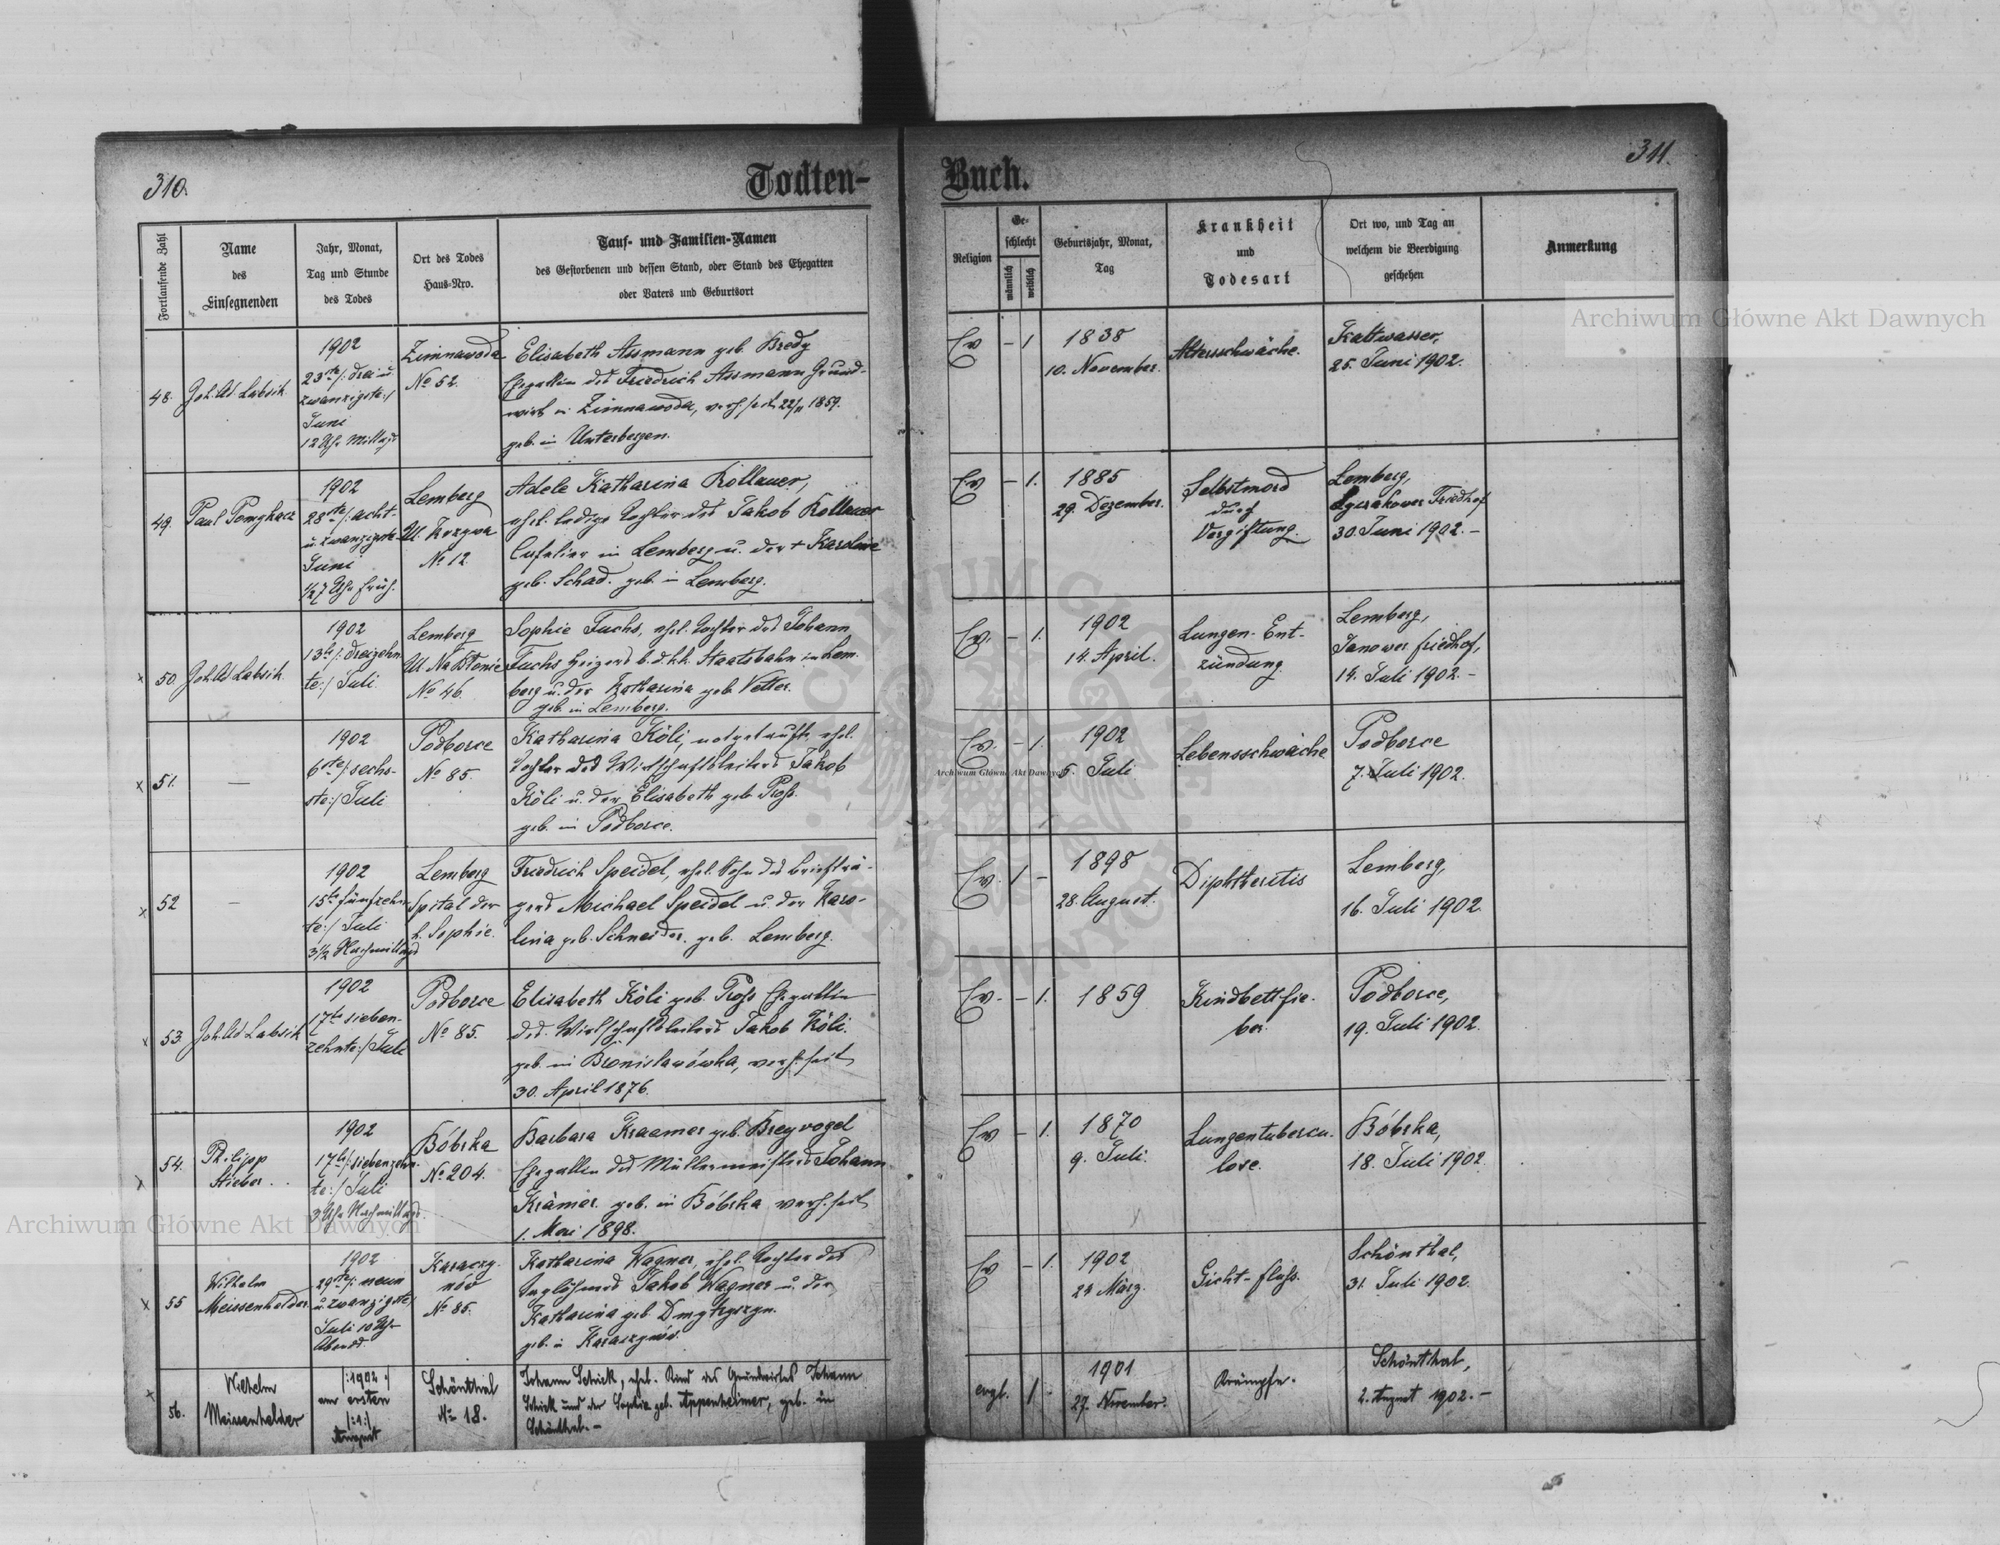 310.
Todten-
Fortlaufende Zahl
Name
des
Einsegnenden
Jahr, Monat,
Tag und Stunde
des Todes
Ort des Todes
Haus-Nro.
Tauf- und Familien-Namen
des Gestorbenen und dessen Stand, oder Stand des Ehegatten
oder Vaters und Geburtsort
48.
Joh. Ad. Labsik
1902
23te /: drei u
zwanzigste :/
Juni
12 Uhr Mittags
Zimnawoda
No 52.
Elisabeth Assmann geb. Bredy
Ehegattin des Friedrich Assmann Grund-
wirt in Zimnawoda, verh. seit 22/11 1859.
geb. in Unterbergen.
49.
Paul
1902
28te /: acht-
u. zwanzigste
Juni
1/27 Uhr früh.
Lemberg
Ul.
No 12.
Adele Katharina Kollauer,
ehel. ledige Tochter des Jakob Kollauer
in Lemberg u. der + Karoline
geb. Schad. geb. in Lemberg.
x 50.
Joh. Ad. Labsik.
1902
13te /: dreizehn
te :/ Juli
Lemberg
Ul. Na Błonie
No 46.
Sophie Fuchs, ehel. Tochter des Johann
Fuchs Heizers b. d. k.k. Staatsbahn in Lem-
berg u. der Katharina geb. Vetter.
geb. in Lemberg.
x 51.
—
1902
6te /: sechs-
ste :/ Juli
Podborce
No 85.
Katharina Köli, notgetaufte ehel.
Tochter des Wirtschaftsleiters Jakob
Köli u. der Elisabeth geb. Pross.
geb. in Podborce.
x 52
—
1902
15te fünfzehn
te :/ Juli
3 1/2 Nachmittags
Lemberg
Spital der
h. Sophie.
Friedrich Speidel, ehel. Sohn des Briefträ-
gers Michael Speidel u. der Karo-
lina geb. Schneider. geb. Lemberg.
x 53.
Joh. Ad. Labsik
1902
17te sieben-
zehnte :/ Juli
Podborce
No 85.
Elisabeth Köli geb. Pross Ehegattin
des Wirtschaftsleiters Jakob Köli.
geb. in Bronisławówka, verh. seit
30. April 1876.
x 54.
Philipp
Stieber.
1902
17te /: siebenzehn-
te :/ Juli
3 Uhr Nachmittags.
Bóbrka
No 204.
Barbara Kraemer geb. Breyvogel
Ehegattin des Müllermeisters Johann
Krämer. geb. in Bóbrka verh. seit
1. Mai 1898.
x 55
Wilhelm
Meissenhelder
1902
29te /: neun
u. zwanzigste /
Juli 10 Uhr
Abends.
Karaczy-
nów
No 85.
Katharina Wagner, ehel. Tochter des
Taglöhners Jakob Wagner u. der
Katharina geb.
geb. in Karaczynów.
x 56.
Wilhelm
Meissenhelder
/: 1902 :/
am ersten
/: 1 :/
August
Schönthal
No 18.
Johann Schick, ehel. Kind des Grundwirtes Johann
Schick und der Sophie geb. Appenheimer, geb. in
Schönthal. –
311.
Buch.
Religion
Ge-
schlecht
männlich
weiblich
Geburtsjahr, Monat,
Tag
Krankheit
und
Todesart
Ort wo, und Tag an
welchem die Beerdigung
geschehen
Anmerkung
Ev – 1
1838
10. November.
Altersschwäche.
Kaltwasser,
25. Juni 1902.
Ev – 1.
1885
29. Dezember.
Selbstmord
durch
Vergiftung.
Lemberg,
Łyczakower Friedhof
30. Juni 1902. –
Ev. – 1.
1902
14. April.
Lungen-Ent-
zündung.
Lemberg,
Janower Friedhof,
14. Juli 1902. –
Ev. – 1.
1902
5. Juli
Lebensschwäche
Podborce
7. Juli 1902.
Ev. 1 –
1898
28. August.
Diphtheritis
Lemberg,
16. Juli 1902.
Ev. – 1.
1859
Kindbettfie-
ber.
Podborce,
19. Juli 1902.
Ev – 1.
1870
9. Juli.
Lungentubercu-
lose.
Bóbrka,
18. Juli 1902.
Ev – 1.
1902
24 März.
Gicht-fluss.
Schönthal,
31. Juli 1902.
evgl. 1 .
1901
27. November.
Krämpfe.
Schönthal,
2. August 1902. –
Archiwum Główne Akt Dawnych
Archiwum Główne Akt Dawnych
Archiwum Główne Akt Dawnych
ARCHIWUM GŁÓWNE AKT DAWNYCH